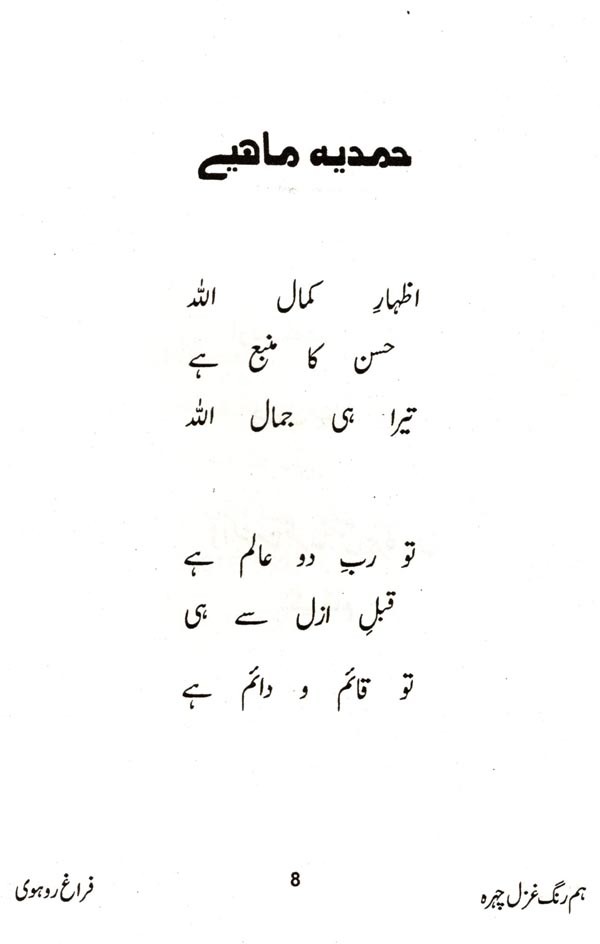 حمدیہ ماهیے
اظہارِ کمال اللہ
حسن کا منبع ہے
تیرا ہی جمال اللہ
تو ربِ دو عالم ہے
قبلِ ازل سے ہی
تو قائم و دائم ہے
ہم رنگ غزل چہرہ
8
فراغ روہوی